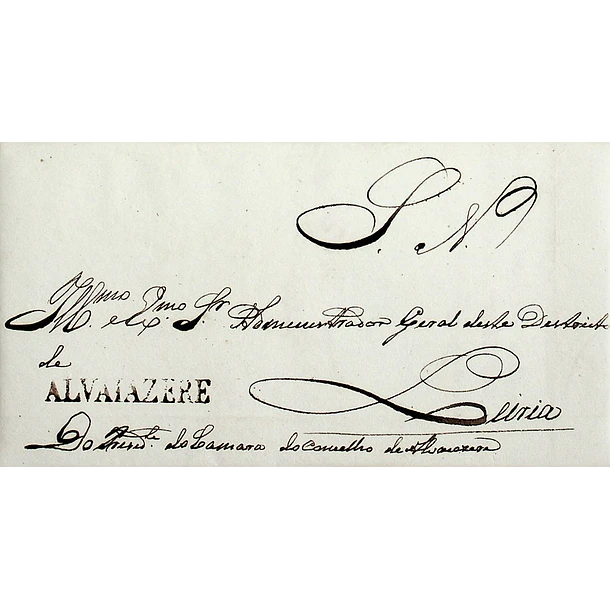 S. N.
Illmo. e Exmo. Sr. Administrador Geral deste Destricto
de
ALVAIAZERE
Leiria
Do Presid.te da Camara do Concelho de Alvaiazere